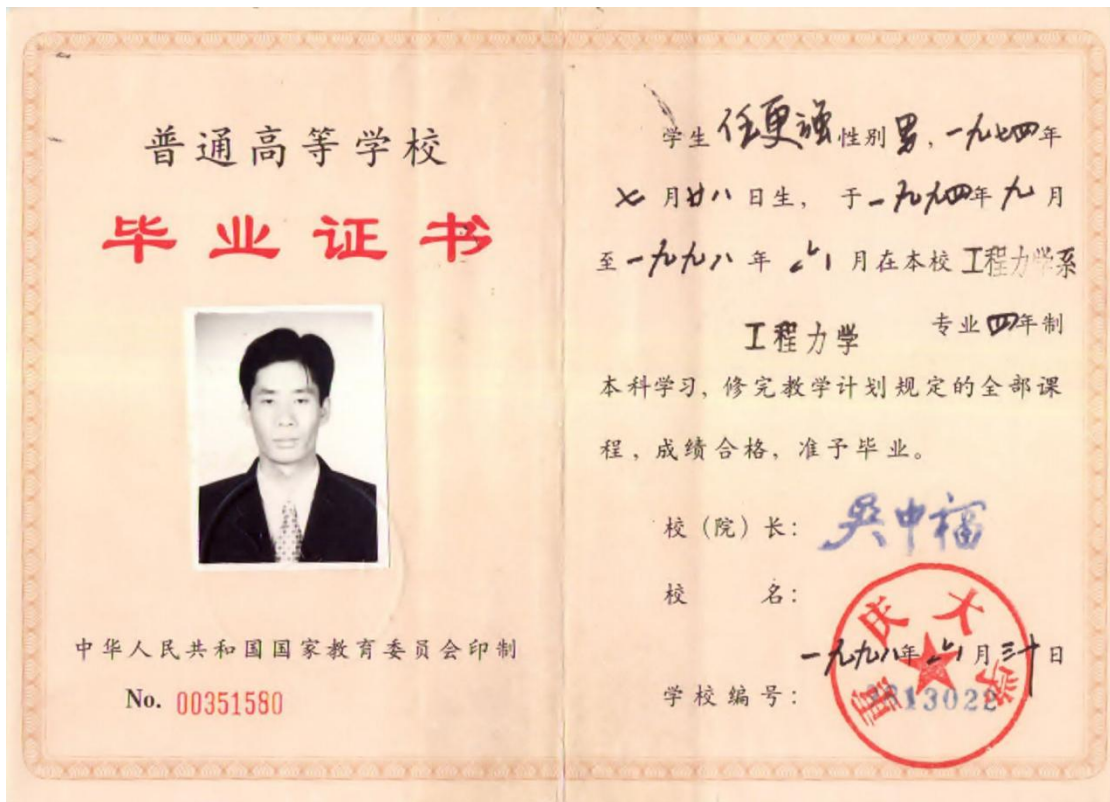 普通高等学校
毕业证书
中华人民共和国国家教育委员会印制
No. 00351580
学生 任更强 性别 男, 一九七四年
七月廿八日生, 于一九九四年九月
至一九九八年 六 月在本校 工程力学系
工程力学 专业四年制
本科学习, 修完教学计划规定的全部课
程, 成绩合格, 准予毕业。
校(院)长: 吴中福
校 名:
重庆大学
一九九八年六月三十日
学校编号: 13022